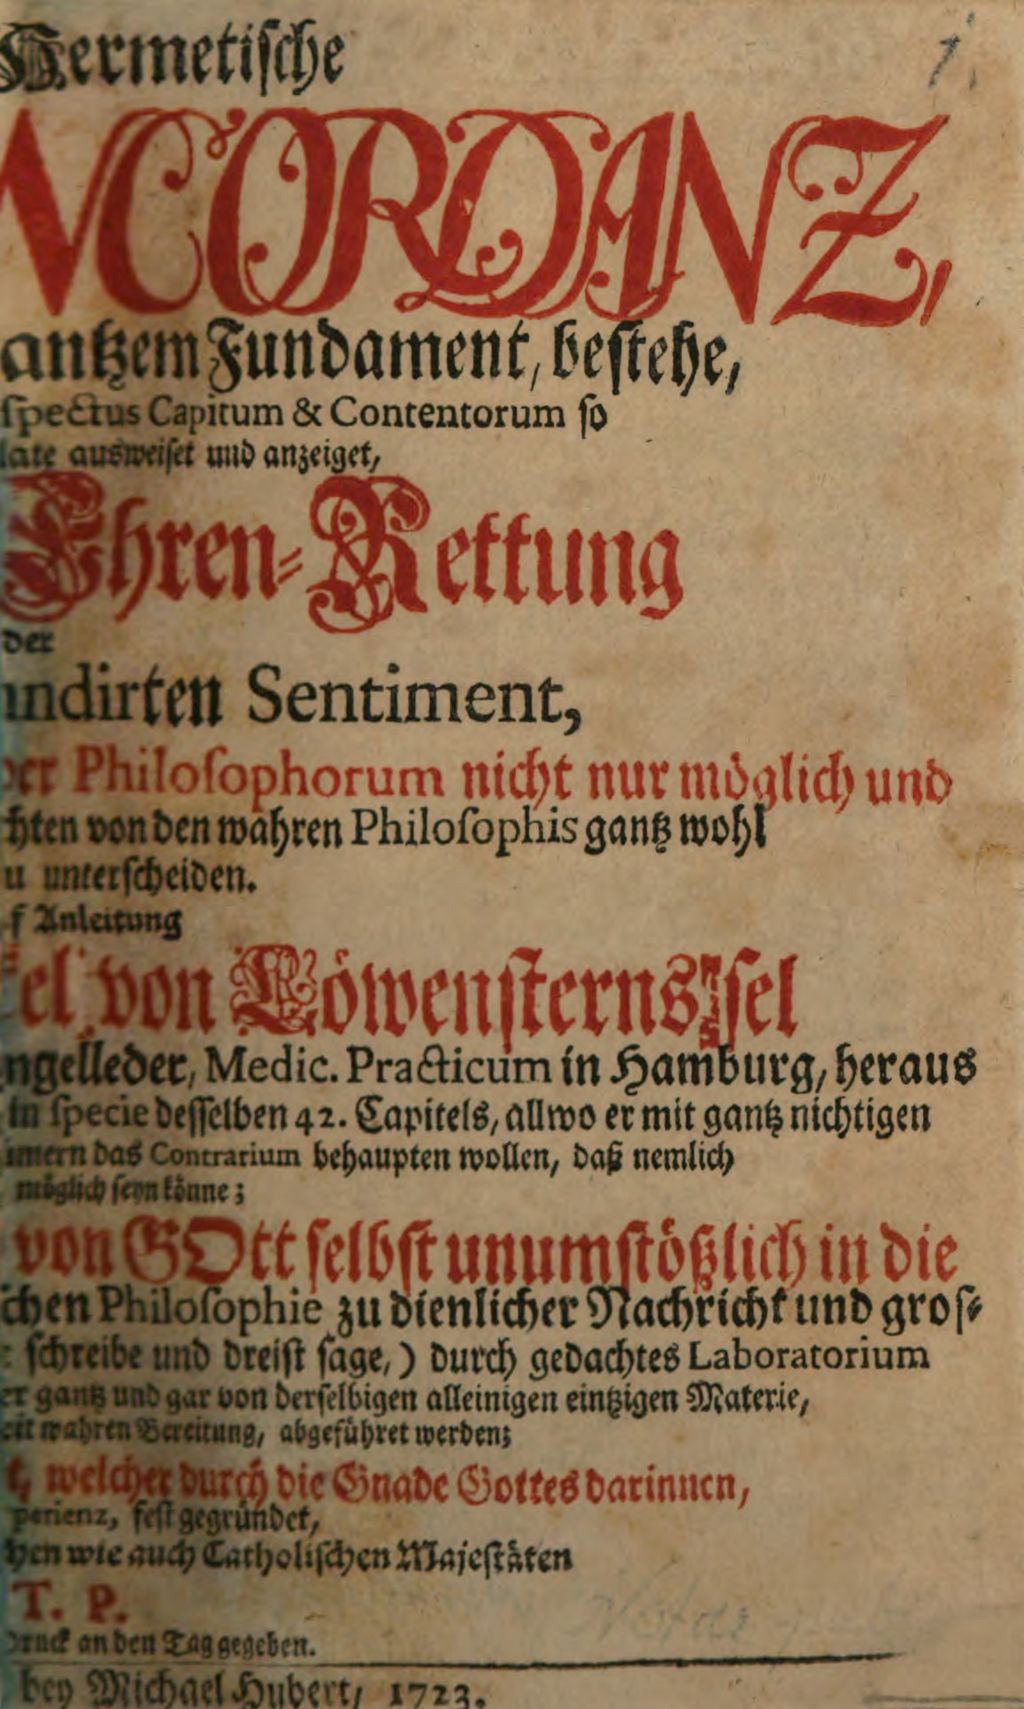 Hermetische
NCORDANZ,
antzem Fundament, bestehe,
spectus Capitum & Contentorum so
late ausweiset und anzeiget,
Ehren-Rettung
der
undirten Sentiment,
der Philosophorum nicht nur möglich und
hten von den wahren Philosophis gantz wohl
u unterscheiden.
f Anleitung
el von Löwensterns-Isel
ngelleder, Medic. Practicum in Hamburg, heraus
in specie desselben 42. Capitels, allwo er mit gantz nichtigen
das Contrarium behaupten wollen, daß nemlich
möglich seyn könne;
von GOtt selbst unumstößlich in die
chen Philosophie zu dienlicher Nachricht und gros-
schreibe und dreist sage,) durch gedachtes Laboratorium
er gantz und gar von derselbigen alleinigen eintzigen Materie,
wahren Bereitung, abgeführet werden;
t, welcher durch die Gnade Gottes darinnen,
perienz, fest gegründet,
hen wie auch Catholischen Majestäten
T. P.
Druck an den Tag gegeben.
bey Michael Hubert, 1723.